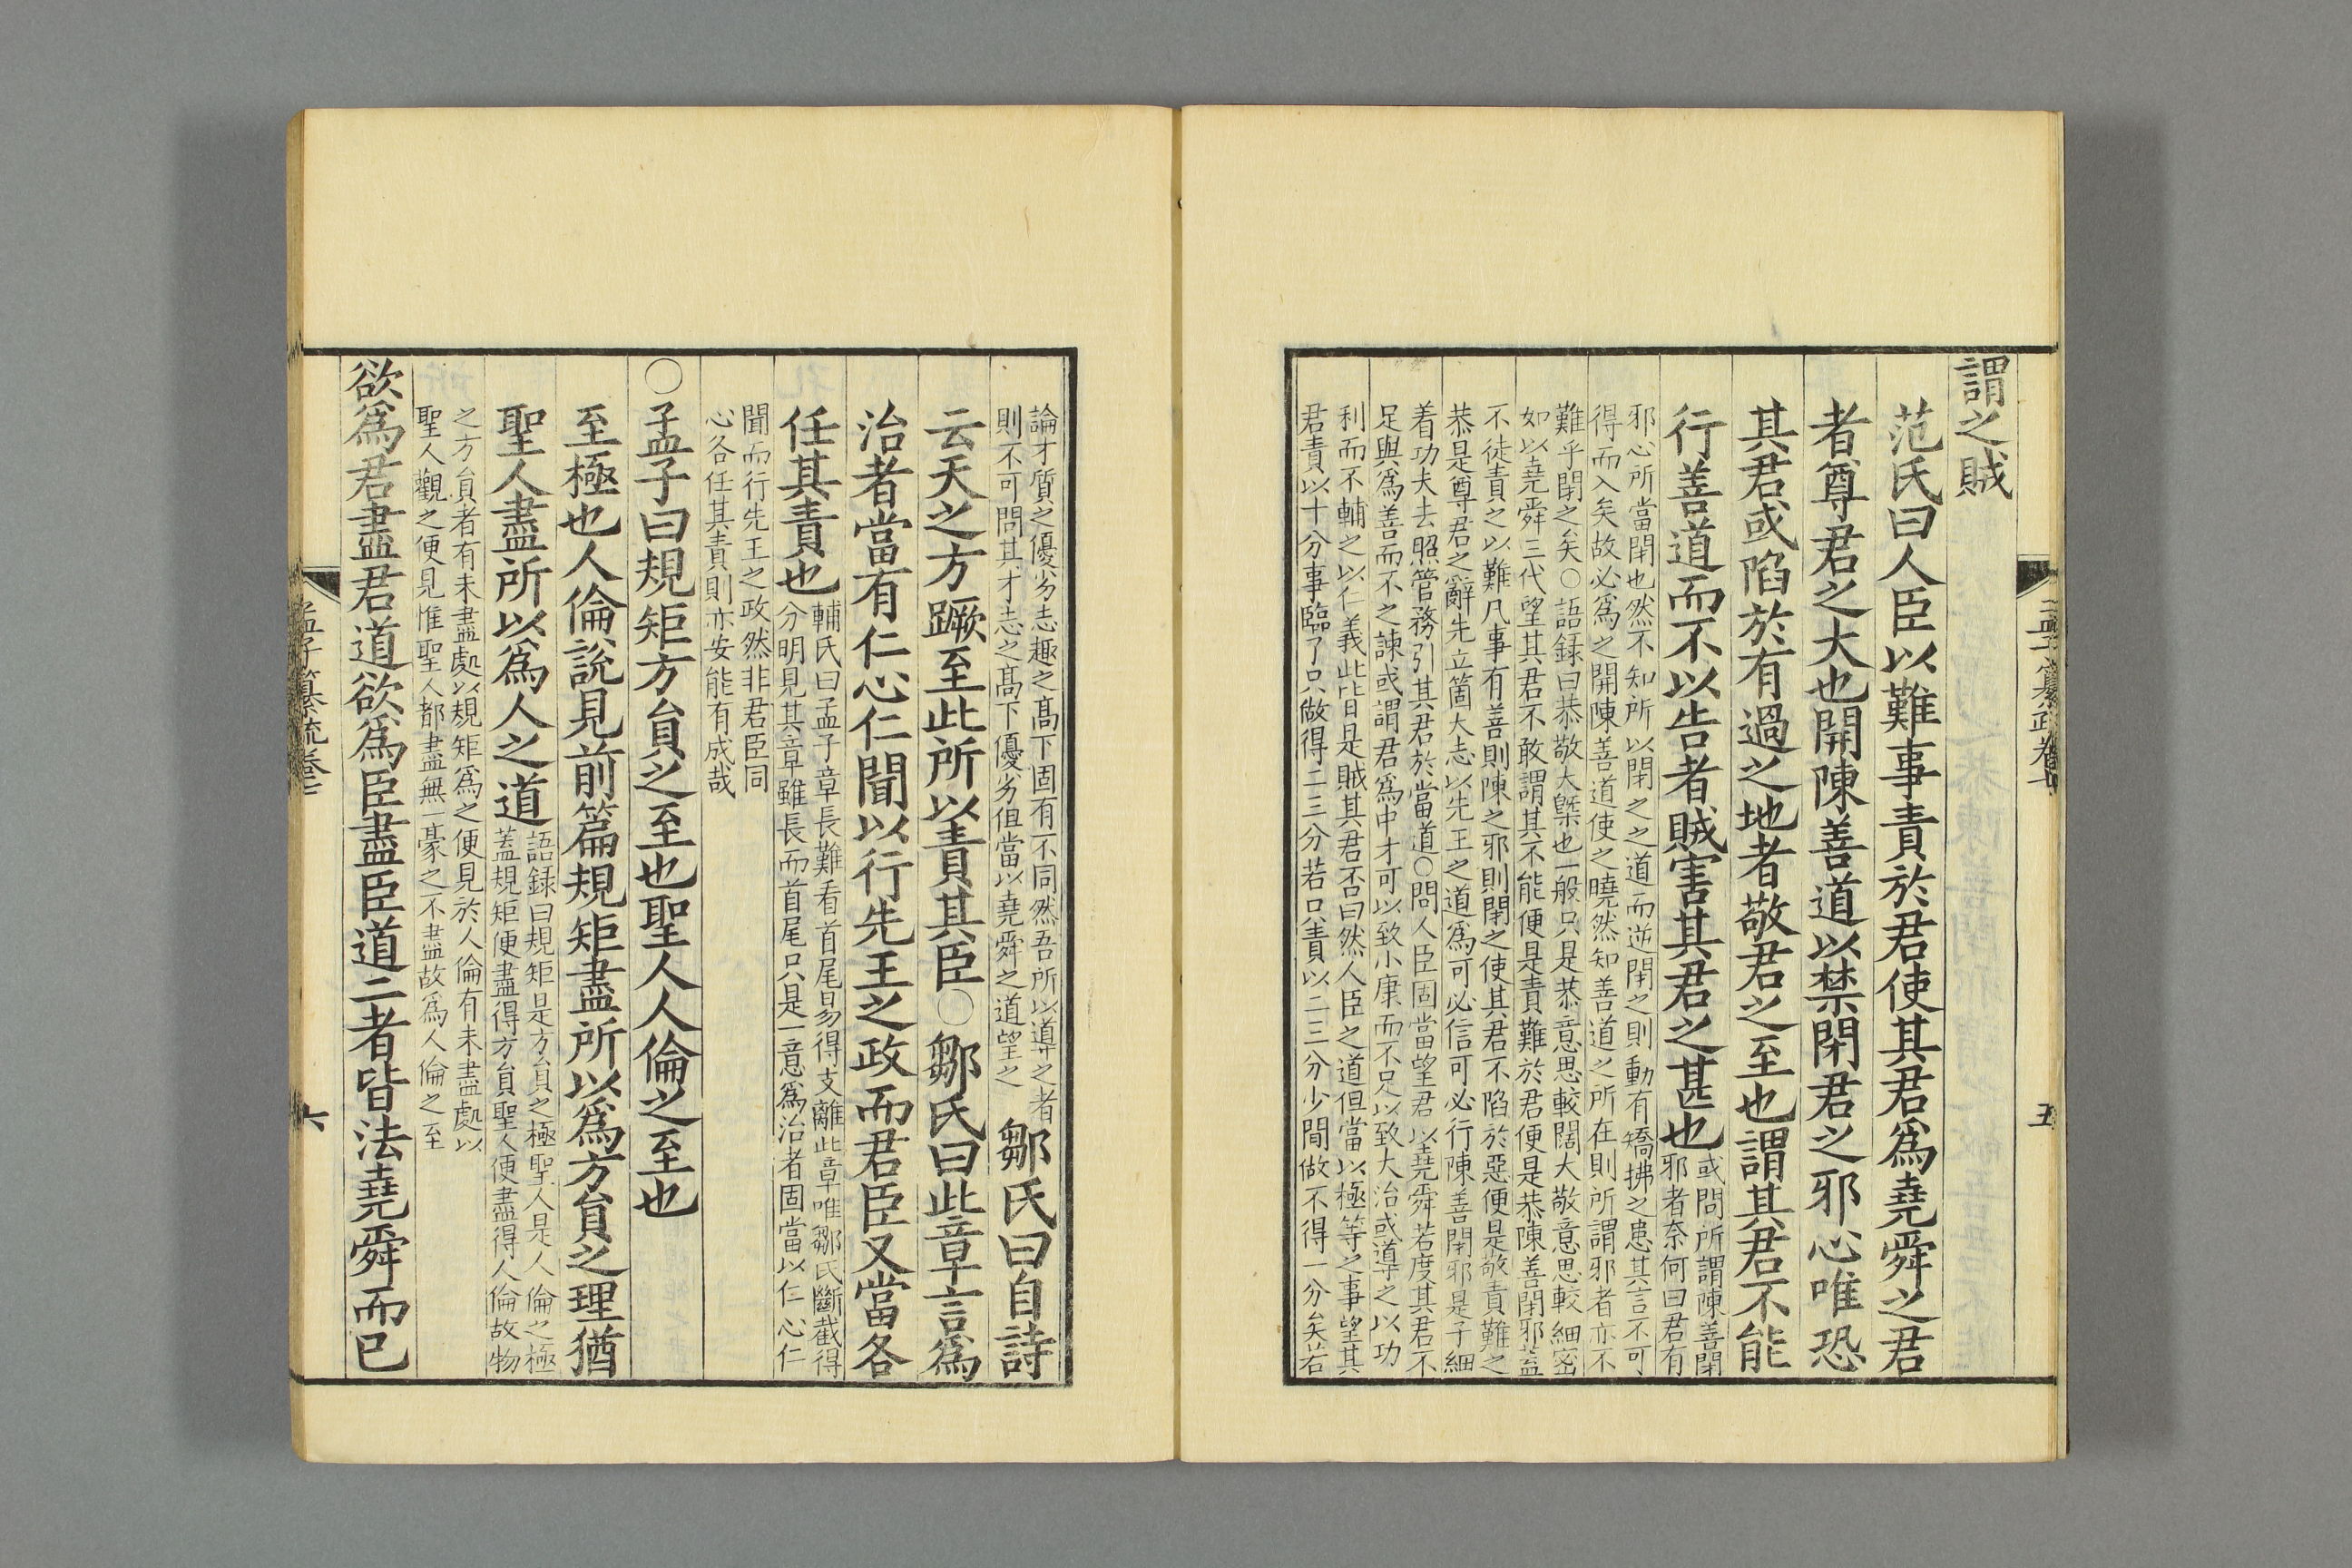 孟子纂疏卷七
五
謂之賊
范氏曰人臣以難事責於君使其君爲堯舜之君
者尊君之大也開陳善道以禁閉君之邪心唯恐
其君或陷於有過之地者敬君之至也謂其君不能
行善道而不以告者賊害其君之甚也
或問所謂陳善閉
邪者奈何曰君有
邪心所當閉也然不知所以閉之之道而逆閉之則動有矯拂之患其言不可
得而入矣故必爲之開陳善道使之曉然知善道之所在則所謂邪者亦不
難乎閉之矣○語録曰恭敬大槩也一般只是恭意思較闊大敬意思較細密
如以堯舜三代望其君不敢謂其不能便是責難於君便是恭陳善閉邪蓋
不徒責之以難凡事有善則陳之邪則閉之使其君不陷於惡便是敬責難之
恭是尊君之辭先立箇大志以先王之道爲可必信可必行陳善閉邪是子細
着功夫去照管務引其君於當道○問人臣固當望君以堯舜若度其君不
足與爲善而不之諫或謂君爲中才可以致小康而不足以致大治或導之以功
利而不輔之以仁義此皆是賊其君否曰然人臣之道但當以極等之事望其
君責以十分事臨了只做得二三分若只責以二三分少間做不得一分矣若
論才質之優劣志趣之高下固有不同然吾所以導之者
則不可問其才志之高下優劣但當以堯舜之道望之
鄒氏曰自詩
云天之方蹶至此所以責其臣○鄒氏曰此章言爲
治者當有仁心仁聞以行先王之政而君臣又當各
任其責也
輔氏曰孟子章長難看首尾易得支離此章唯鄒氏斷截得
分明見其章雖長而首尾只是一意爲治者固當以仁心仁
聞而行先王之政然非君臣同
心各任其責則亦安能有成哉
○孟子曰規矩方員之至也聖人人倫之至也
至極也人倫說見前篇規矩盡所以爲方員之理猶
聖人盡所以爲人之道
語録曰規矩是方員之極聖人是人倫之極
蓋規矩便盡得方員聖人便盡得人倫故物
之方員者有未盡處以規矩爲之便見於人倫有未盡處以
聖人觀之便見惟聖人都盡無一豪之不盡故爲人倫之至
欲爲君盡君道欲爲臣盡臣道二者皆法堯舜而已
孟子纂疏卷七
六